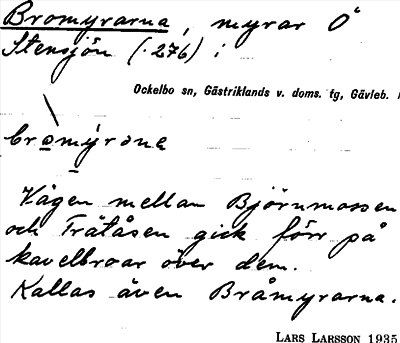 Bromyrarna, myrar Ö
Stensjön (.276) i
Ockelbo sn, Gästriklands v. doms. tg, Gävleb.
bromýrona
Vägen mellan Björnmossen
och Trätåsen gick förr på
kavelbroar över dem.
Kallas även Bråmyrarna.
LARS LARSSON 1935